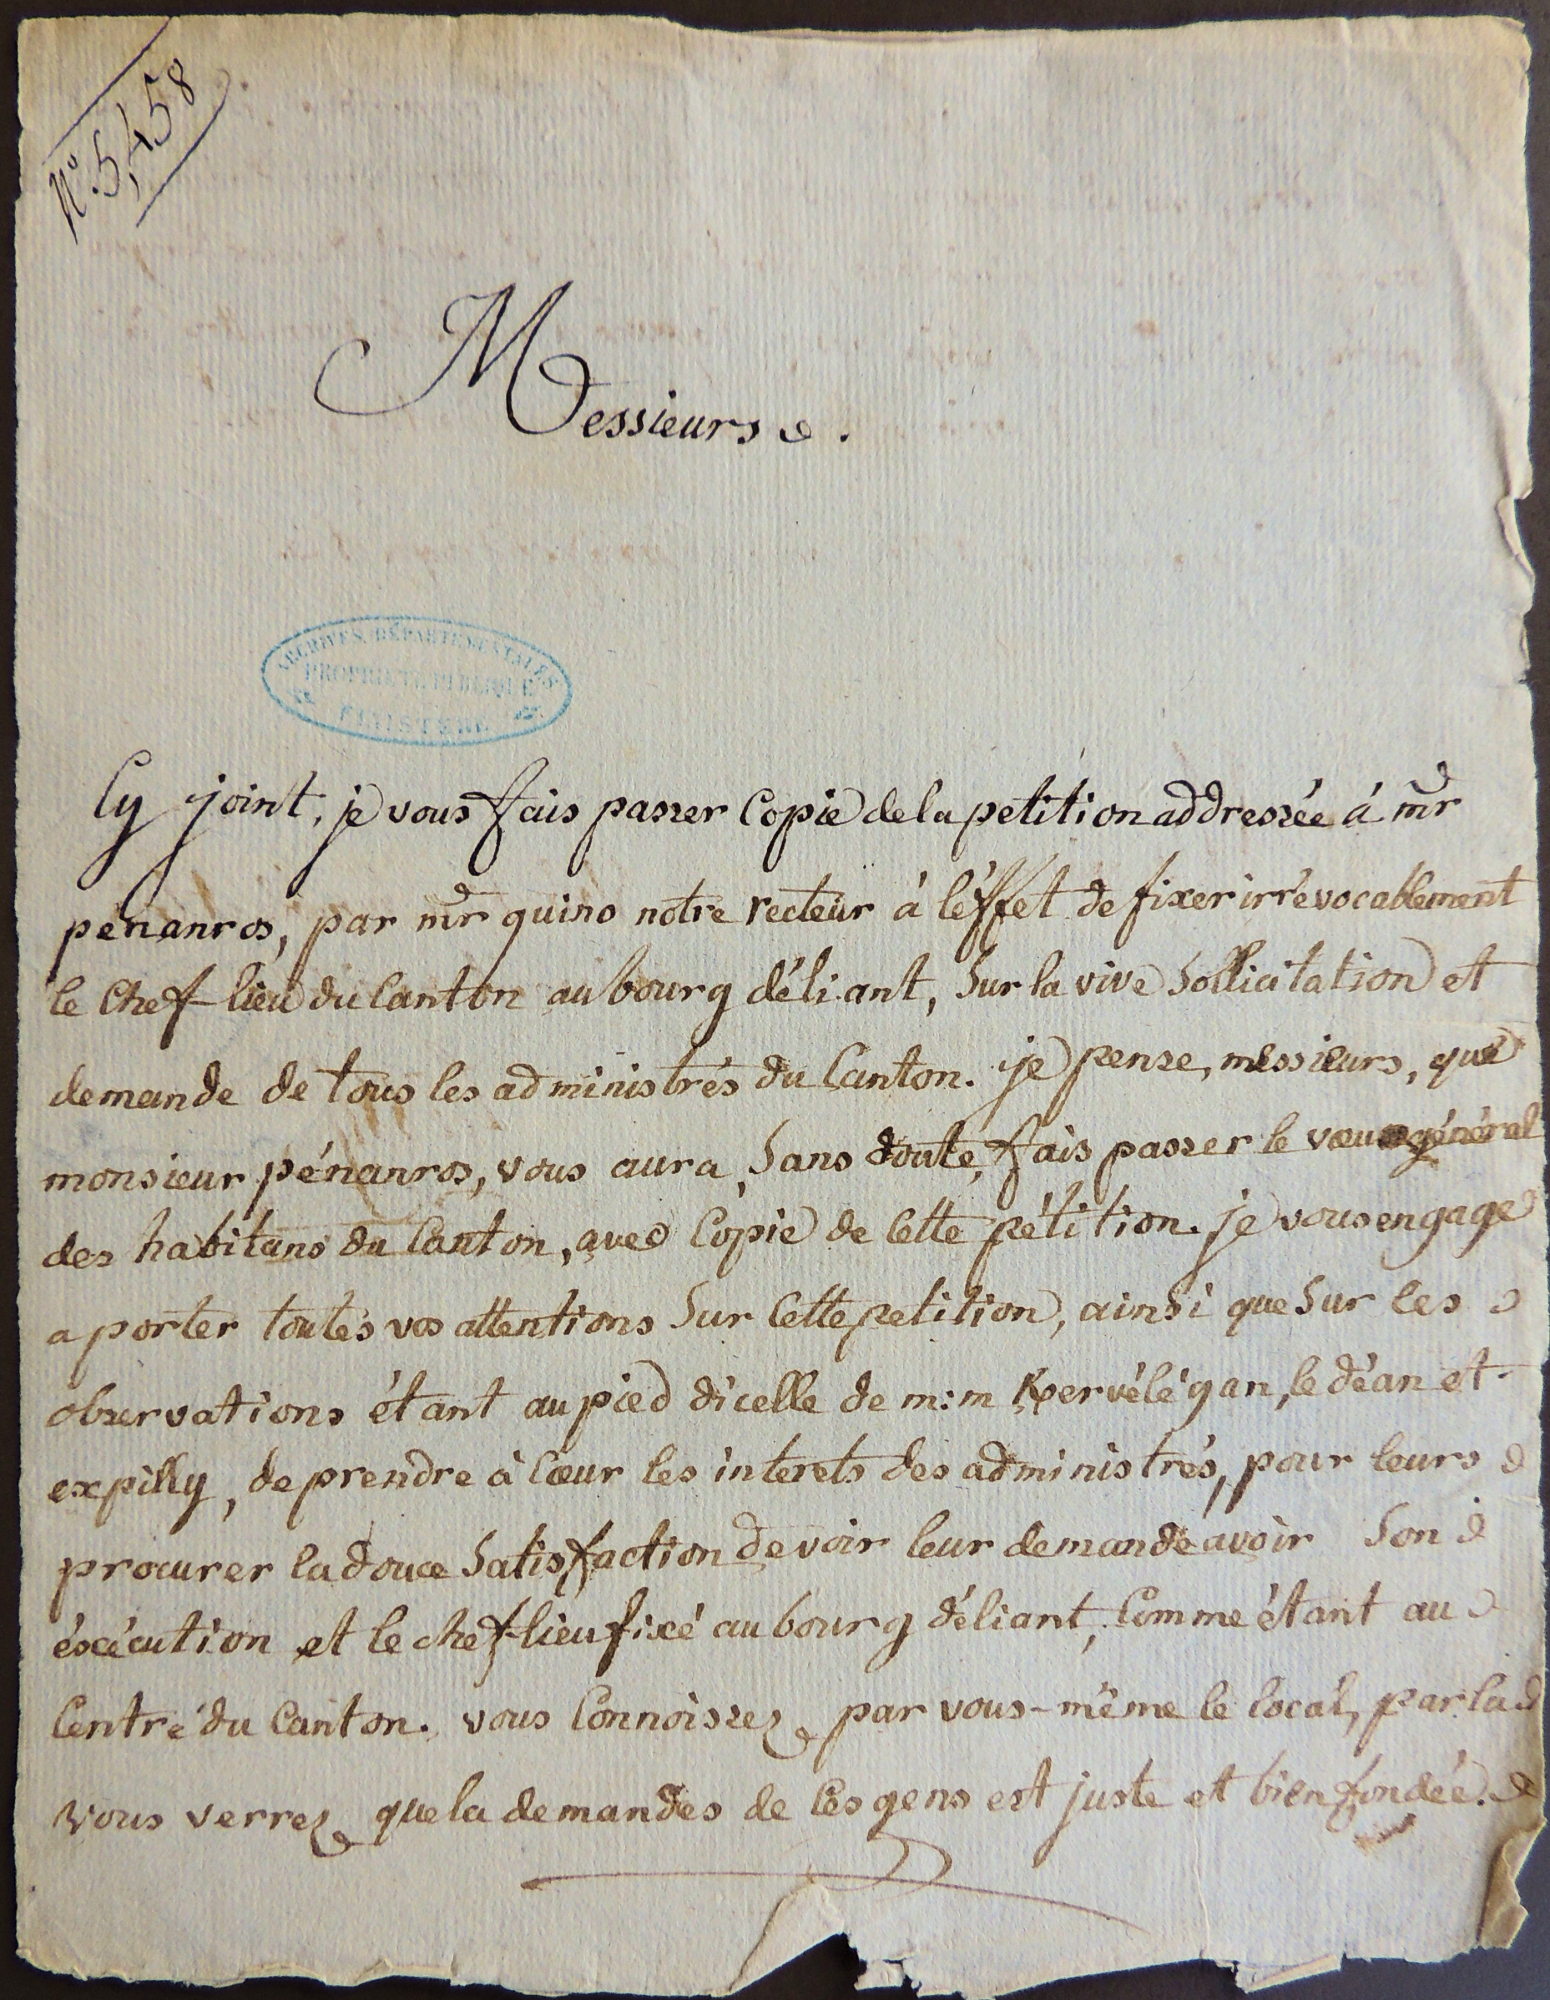 N.° 5,458
Messieurs.
ARCHIVES DÉPARTEMENTALES
PROPRIÉTÉ PUBLIQUE
FINISTÈRE
Cy joint, je vous fais passer Copie de la petition addressée á mr
pénanros, par mr quino notre recteur à l'éffet de fixer irrévocablement
le Chef-lieu du Canton au bourg d'éliant, Sur la vive Sollicitation et
demande de tous les administrés du Canton. je pense, messieurs, que
monsieur pénanros, vous aura, Sans doute, fais passer le vœu général
des habitans du Canton, avec Copie de Cette pétition. je vous engage
a porter toutes vos attentions Sur Cette petition, ainsi que Sur les
observations étant au pied d'icelle de m: m Kervélégan, le déan et
expilly, de prendre à Cœur les interets des administrés, pour leurs
procurer la douce Satisfaction de voir leur demande avoir Son
éxécution et le chef-lieu fixé au bourg d'éliant, Comme étant au
Centre du Canton. vous Connoissez par vous-même le local, par la
vous verrez que la demandes de Ces gens est juste et bien fondée.